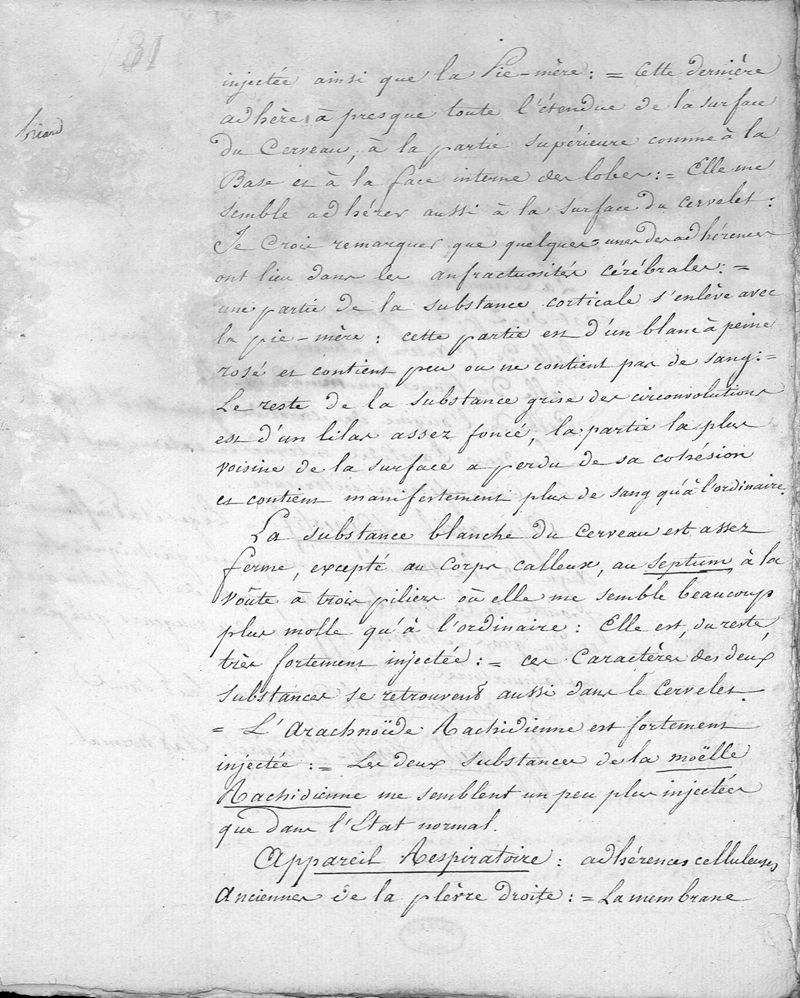 131
injectée ainsi que la Pie-mère : = Cette dernière
adhère à presque toute l'étendue de la surface
du Cerveau, à la partie supérieure comme à la
Base et à la face interne des lobes : = Elle me
semble adhérer aussi à la surface du cervelet :
Je Crois remarquer que quelques-unes des adhérences
ont lieu dans les anfractuosités cérébrales : =
une partie de la substance corticale s'enlève avec
la pie-mère : cette partie est d'un blanc à peine
rosé et contient peu ou ne contient pas de sang : =
Le reste de la substance grise des circonvolutions
est d'un lilas assez foncé, la partie la plus
voisine de la surface a perdu de sa cohésion
et contient manifestement plus de sang qu'à l'ordinaire.
La substance blanche du Cerveau est assez
ferme, excepté au Corps calleux, au Septum, à la
voûte à trois piliers où elle me semble beaucoup
plus molle qu'à l'ordinaire : Elle est, du reste,
très fortement injectée : = ces Caractères des deux
substances se retrouvent aussi dans le Cervelet.
= L'Arachnoïde Rachidienne est fortement
injectée : = Les deux substances de la moëlle
Rachidienne me semblent un peu plus injectées
que dans l'Etat normal.
Appareil Respiratoire : adhérences celluleuses
Anciennes de la plèvre droite : = La membrane